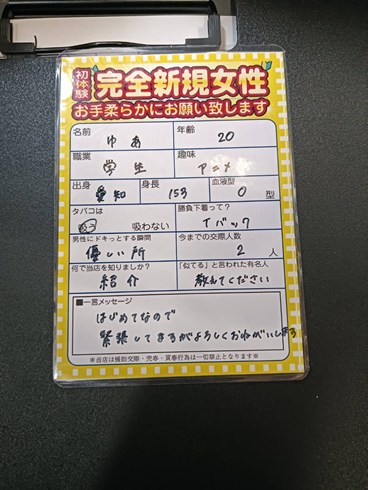 初体験 完全新規女性
お手柔らかにお願い致します
名前 ゆあ 年齢 20
職業 学生 趣味 アニメ
出身 愛知 身長 153 血液型 O 型
タバコは 吸う 吸わない 勝負下着って? Tバック
男性にドキっとする瞬間 優しい所 今までの交際人数 2 人
何で当店を知りましたか? 紹介 「似てる」と言われた有名人 教えてください
■一言メッセージ
はじめてなので
緊張してますがよろしくおねがいします
※当店は援助交際・売春・買春行為は一切禁止となります※